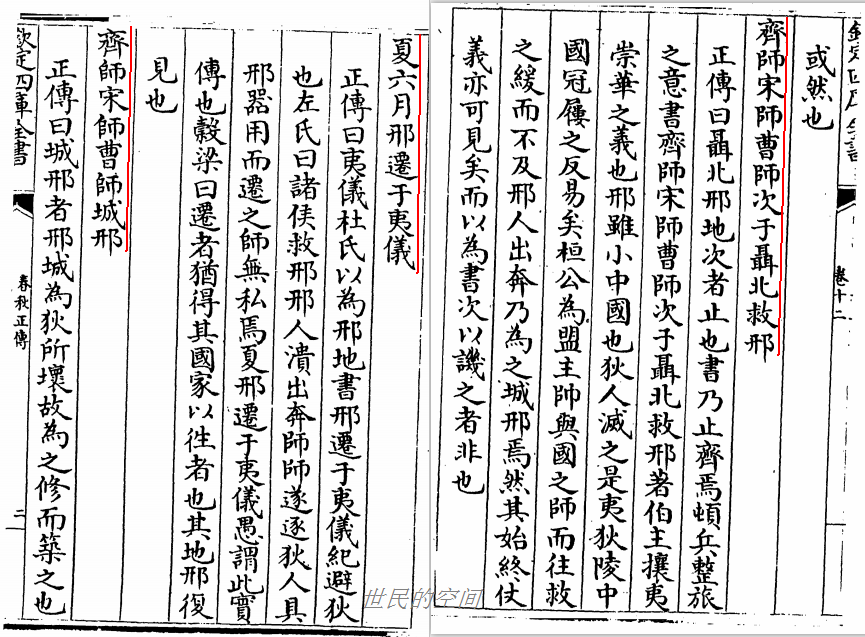 欽定四庫全書
卷十二
或然也
齊師宋師曹師次于聶北救邢
正傳曰聶北邢地次者止也書乃止齊焉頓兵整旅
之意書齊師宋師曹師次于聶北救邢著伯主攘夷
崇華之義也邢雖小中國也狄人滅之是夷狄陵中
國冠屨之反易矣桓公為盟主帥與國之師而往救
之緩而不及邢人出奔乃為之城邢焉然其始終仗
義亦可見矣而以為書次以譏之者非也
夏六月邢遷于夷儀
正傳曰夷儀杜氏以為邢地書邢遷于夷儀紀避狄
也左氏曰諸侯救邢邢人潰出奔師師遂逐狄人具
邢器用而遷之師無私焉夏邢遷于夷儀愚謂此實
傳也穀梁曰遷者猶得其國家以徃者也其地邢復
見也
齊師宋師曹師城邢
正傳曰城邢者邢城為狄所壞故為之修而築之也
欽定四庫全書
春秋正傳
二
世民的空间